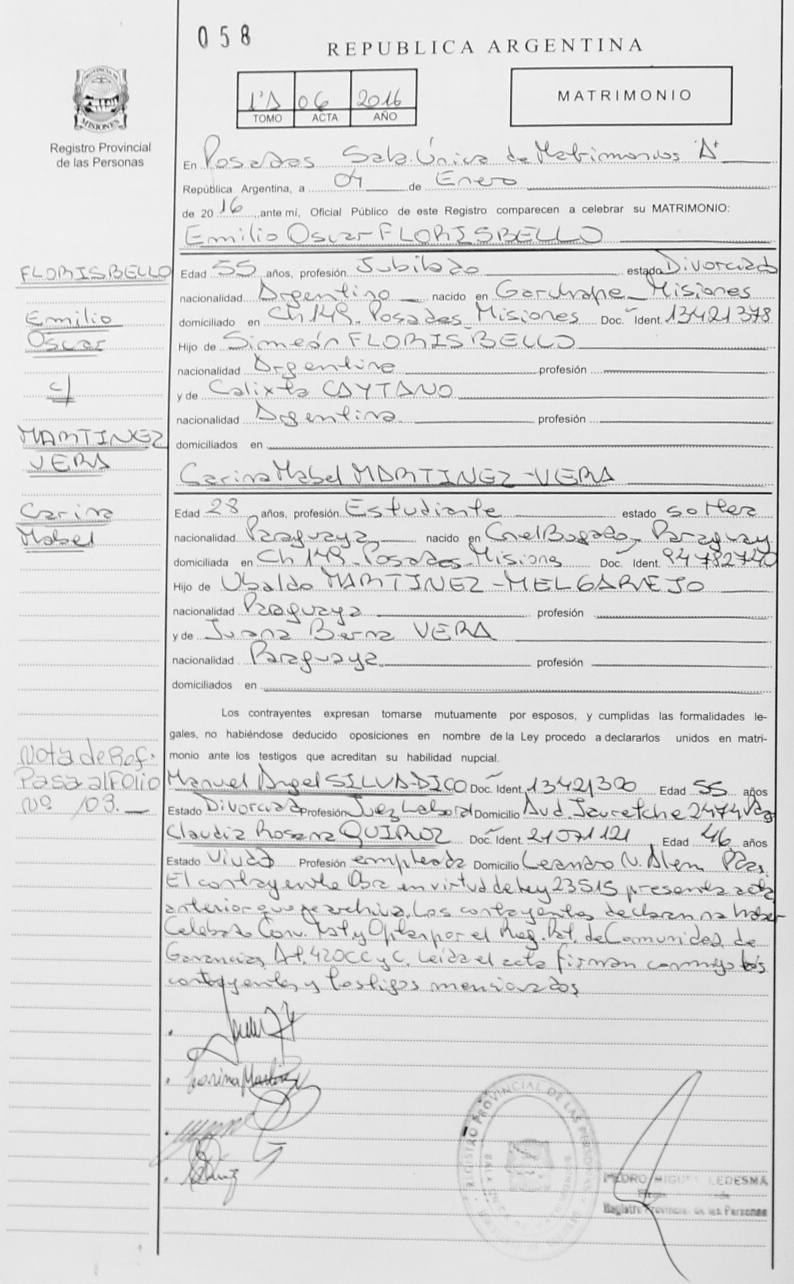 058
REPUBLICA ARGENTINA
PROVINCIA DE
MISIONES
Registro Provincial
de las Personas
1°A 06 2016
TOMO ACTA AÑO
MATRIMONIO
En Posadas Sala Única de Matrimonios "A"
República Argentina, a 04 de Enero
de 2016 ante mí, Oficial Público de este Registro comparecen a celebrar su MATRIMONIO:
Emilio Oscar FLORISBELLO
FLORISBELLO
Emilio
Oscar
c/
MARTINEZ
VERA
Carina
Mabel
Edad 55 años, profesión Jubilado estado Divorciado
nacionalidad Argentino nacido en Garuhape Misiones
domiciliado en Ch 149. Posadas Misiones Doc. Ident. 13421378
Hijo de Simeón FLORISBELLO
nacionalidad Argentina profesión
y de Calixta CAYTANO
nacionalidad Argentina profesión
domiciliados en
Carina Mabel MARTINEZ-VERA
Edad 28 años, profesión Estudiante estado soltera
nacionalidad Paraguaya nacido en Cnel Bogado, Paraguay
domiciliada en Ch 149. Posadas Misiones Doc. Ident. 94782740
Hijo de Ubaldo MARTINEZ-MELGAREJO
nacionalidad Paraguaya profesión
y de Juana Berna VERA
nacionalidad Paraguaya profesión
domiciliados en
Los contrayentes expresan tomarse mutuamente por esposos, y cumplidas las formalidades le-
gales, no habiéndose deducido oposiciones en nombre de la Ley procedo a declararlos unidos en matri-
monio ante los testigos que acreditan su habilidad nupcial.
Nota de Ref:
Pasa al FOLIO
Nº 103.
Manuel Angel SILVA-DICO Doc. Ident. 13421300 Edad 55 años
Estado Divorciado Profesión Juez Laboral Domicilio Avd. Jauretche 2474
Claudia Rosana QUIROZ Doc. Ident. 21071121 Edad 46 años
Estado Viuda Profesión empleada Domicilio Leandro N. Alem Pdas.
El contrayente obra en virtud de Ley 23515 presenta acta
anterior que se archiva. Los contrayentes declaran no haber
Celebrado Conv. Mat y Optan por el Reg. Pat. de Comunidad de
Ganancias Art. 420CC y C. Leída el acta firman conmigo los
contrayentes y testigos mencionados
Carina Martinez
REGISTRO PROVINCIAL DE LAS PERSONAS
PEDRO MIGUEL LEDESMA
Registro Provincial de las Personas